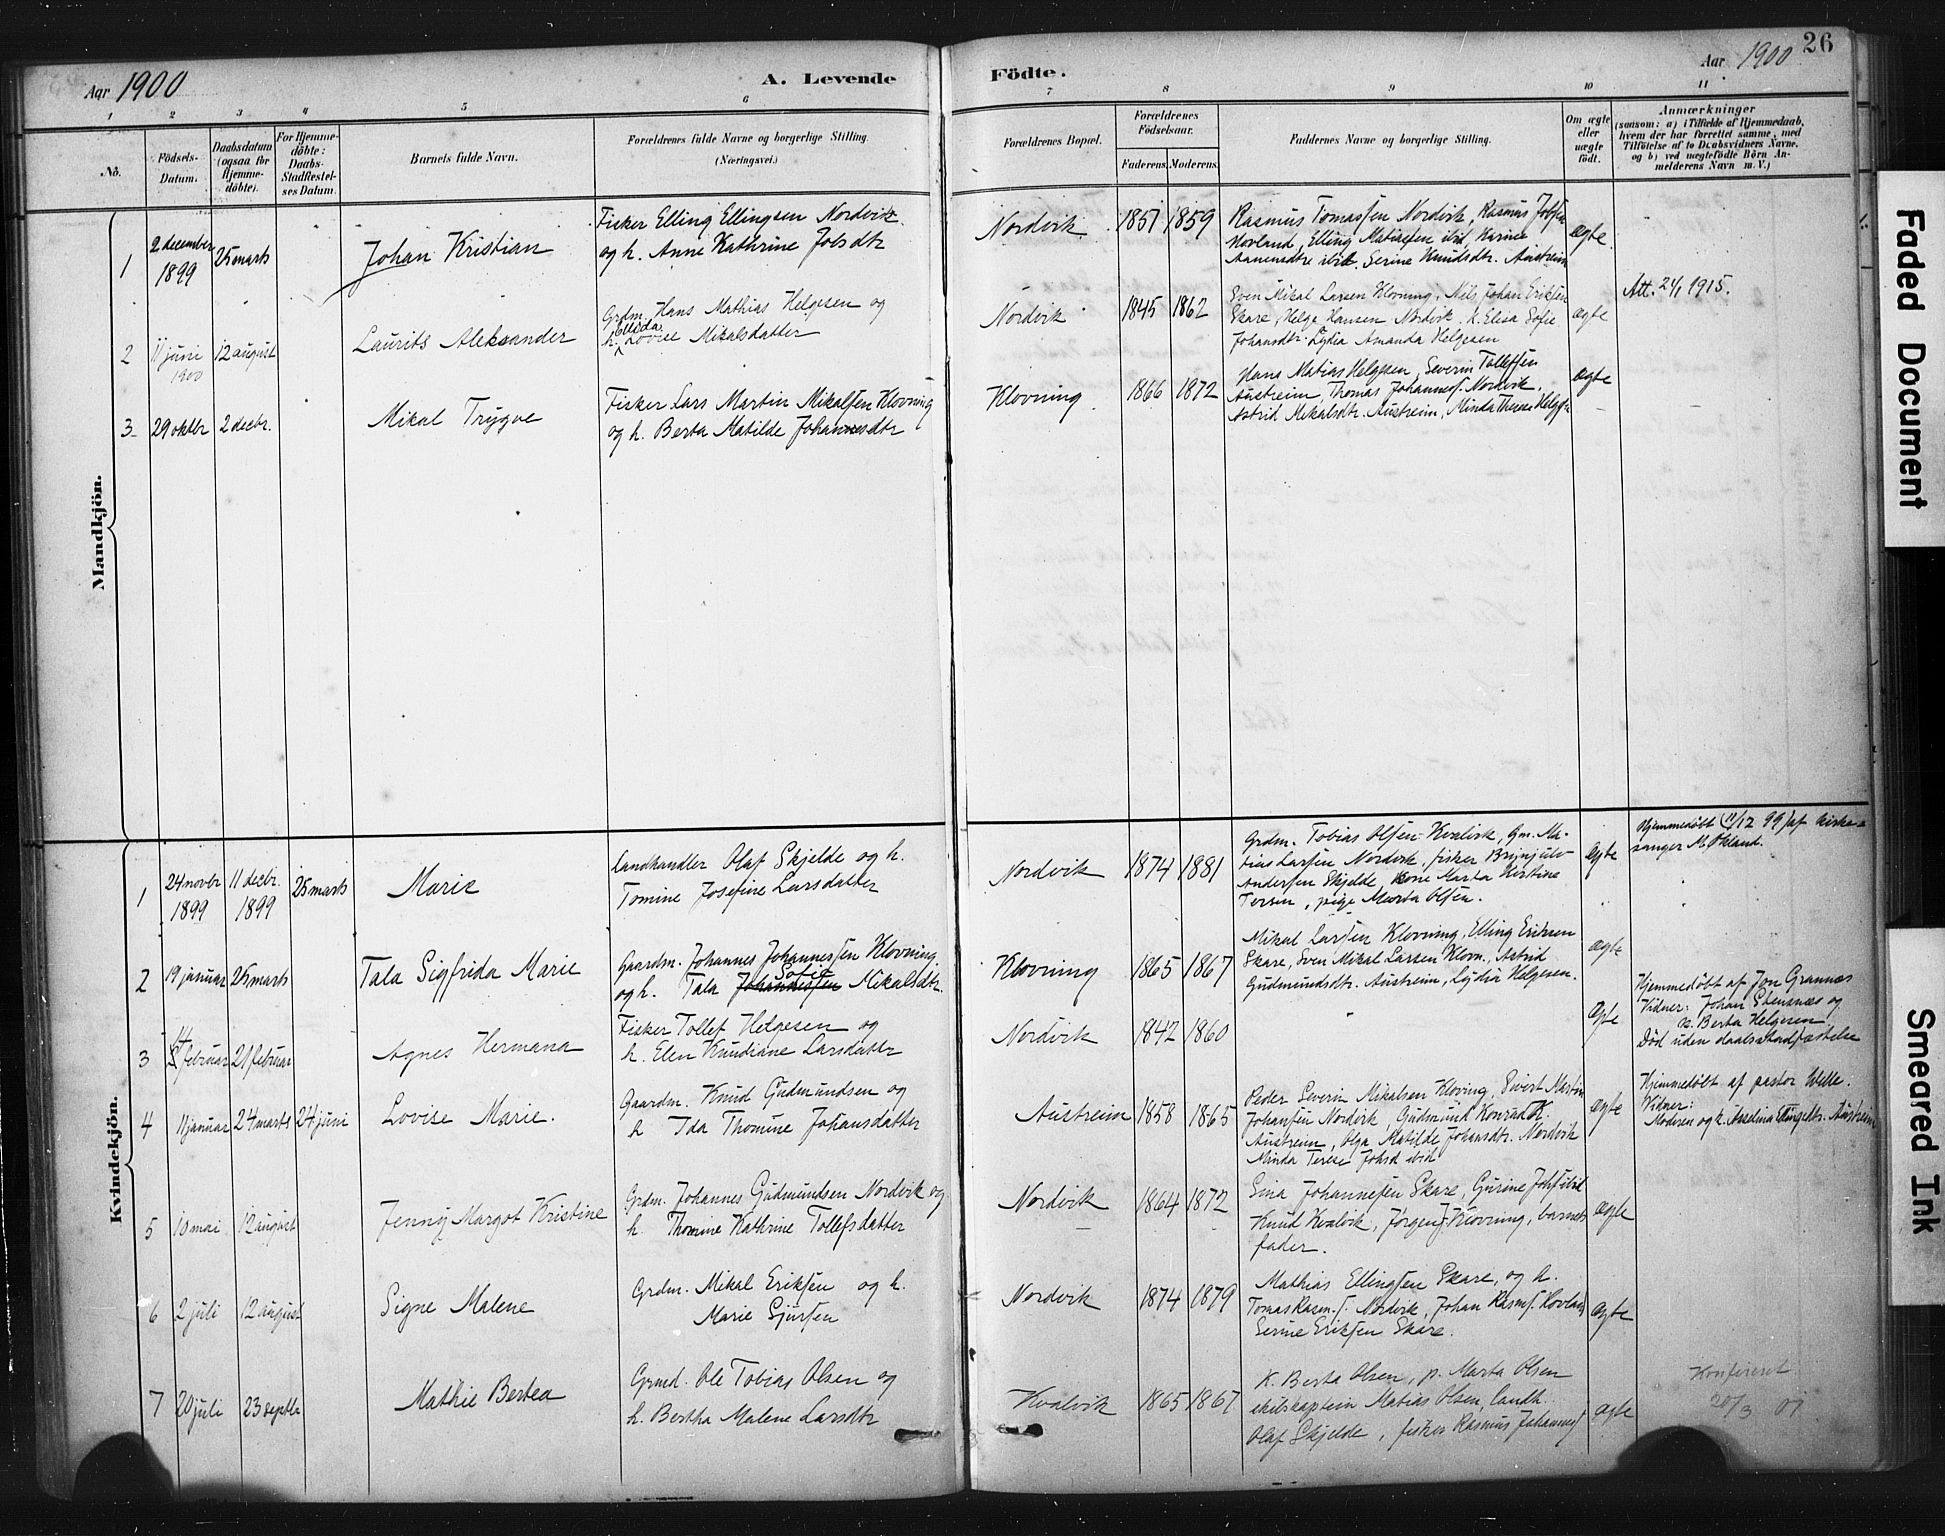 Aar 1900
A. Levende Födte.
Aar 1900
26
1 2 3 4 5 6 7 8 9 10 11
No.
Födsels-Datum.
Daabsdatum (ogsaa for Hjemme-döbte).
For Hjemme-döbte: Daabs-Stadfestel-ses Datum.
Barnets fulde Navn.
Forældrenes fulde Navne og borgerlige Stilling. (Næringsvei.)
Forældrenes Bopæl.
Forældrenes Födselsaar.
Faderens. Moderens.
Faddernes Navne og borgerlige Stilling.
Om ægte eller uægte födt.
Anmærkninger
(saasom: a) i Tilfælde af Hjemmedaab,
hvem der har forrettet samme, med
Tilföielse af to Daabsvidners Navne,
og b) ved uægtefödte Börn An-
melderens Navn m. V.)
Mandkjön.
1 2 december 1899 25 marts
Johan Kristian
Fisker Elling Ellingsen Nordvik
og h. Anne Kathrine Jobsdtr
Nordvik 1857 1859
Rasmus Tomassen Nordvik, Rasmus Jobsen
Hovland, Elling Matiassen ibid, Karine
Aanensdtre ibid. Serine Knudsdtr. Austreim
ægte
2 11 juni 1900 12 august
Laurits Aleksander
Grdm. Hans Mathias Helgesen og
h. Lovise Mikalsdatter
Nordvik 1845 1862
Sven Mikal Larsen Klovning, Nils Johan Eriksen
Skare, Helge Hansen Nordvik, k. Elisa Sofie
Johansdtr. Lydia Amanda Helgesen
ægte
Att. 24/1 1915.
3 29 oktbr 2 decbr.
Mikal Trygve
Fisker Lars Martin Mikalsen Klovning
og h. Berta Matilde Johannesdtr
Klovning 1866 1872
Hans Matias Helgesen, Severin Tollefsen
Austreim, Thomas Johannes. Nordvik,
Astrid Mikalsdtr. Austreim, Minda Therese Helges
ægte
Kvindekjön.
1 24 novbr 1899 11 decbr. 1899 25 marts
Marie
Landhandler Olaf Skjelde og h.
Tomine Josefine Larsdatter
Nordvik 1874 1881
Grdm. Tobias Olsen Kvalvik, Gm. Ma-
tias Larsen Nordvik, fisker Brynjulv
Andersen Skjelde, kone Marta Kirstine
Torsen, pige Marta Olsen.
ægte
Hjemmedøbt 11/12 99 af kirke-
sanger M. Økland.
2 19 januar 25 marts
Tala Sigfrida Marie
Gaardm. Johannes Johannessen Klovning
og h. Tala Sofie Mikalsdtr.
Klovning 1865 1867
Mikal Larsen Klovning, Elling Eriksen
Skare, Sven Mikal Larsen Klovn., Astrid
Gudmundsdtr. Austreim, Lydia Helgesen.
ægte
3 februar 21 februar
Agnes Hermana
Fisker Tollef Helgesen og
h. Elen Knudiane Larsdatter
Nordvik 1842 1860
ægte
Hjemmedøbt af Jon Grannes
Vidner: Johan Stensnæs og
k. Berta Helgesen
Død uden daabsstadfæstelse
4 11 januar 24 marts 24 juni
Lovise Marie.
Gaardm. Knud Gudmundsen og
h Ida Thomine Johansdatter
Austreim 1858 1865
Peder Severin Mikalsen Kloving, Sivert Martin
Johansen Nordvik, Gudmund Konrad K.
Austreim, Olga Matilde Johansdtr. Nordvik
Minda Terese Johsd ibid
ægte
Hjemmedøbt af pastor Welle.
Vidner:
Moderen og k. Anselina Austreim
5 10 mai 12 august
Jenny Margot Kristine
Grdm. Johannes Gudmundsen Nordvik og
h. Thomine Kathrine Tollefsdatter
Nordvik 1864 1872
Sina Johannesen Skare, Gurine Johs ibid
Knud Kvalvik, Jørgen J. Klovning, barnets
fader.
ægte
6 2 juli 12 august
Signe Malene
Grdm. Mikal Eriksen og h.
Marie Sjursen
Nordvik 1874 1879
Mathias Ellingsen Skare, og h.
Tomas Rasm.s. Nordvik, Johan Rasms. Hovland
Serine Eriksen Skare.
ægte
7 20 juli 23 septbr
Mathie Bertea
Grmd. Ole Tobias Olsen og
h. Bertha Malene Larsdtr
Kvalvik 1865 1867
K. Berta Olsen, p. Marta Olsen
skibskaptein Matias Olsen, landh.
Olaf Skjelde, fisker Rasmus Johannes
ægte
20/3 07
Faded Document
Smeared Ink